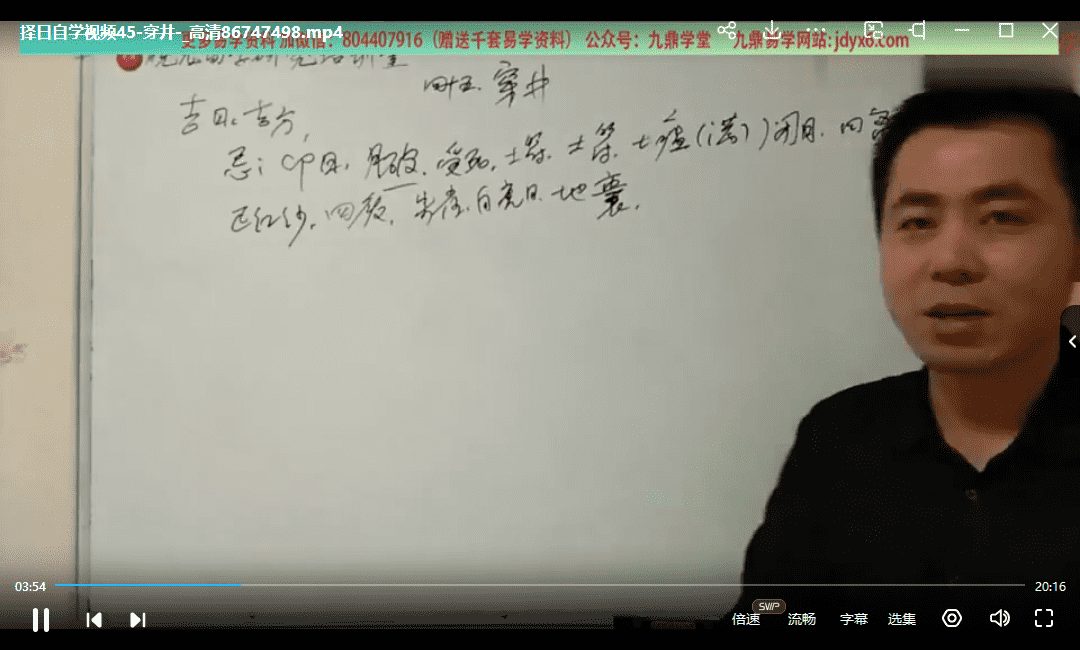 择日自学视频45-穿井-_高清86747498.mp4
更多易学资料 加微信：804407916（赠送千套易学资料） 公众号：九鼎学堂 九鼎易学网站:jdyx6.com
四十五. 穿井
吉日. 吉方,
忌: 卯日. 月破. 受死. 土
土瘟(满) 闭日. 四
正红纱. 四废. 日. 地囊.
03:54
20:16
SVIP
倍速 流畅 字幕 选集